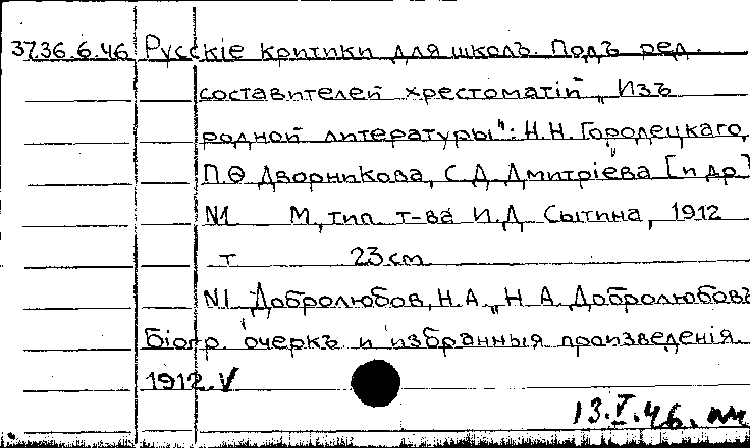 3736.6.46 Русскіе критики для школъ. Подъ ред.
составителей хрестоматій „Изъ
родной литературы": Н.Н. Городецкаго,
П.Ѳ Дворникова, С.Д. Дмитріева [и др.]
№1 М, тип т-ва И.Д Сытина, 1912
т 23 см
№1 Добролюбов, Н.А „Н А Добролюбовъ
Біогр. очеркъ и избранныя произведенія.
1912. V
13.V.46.